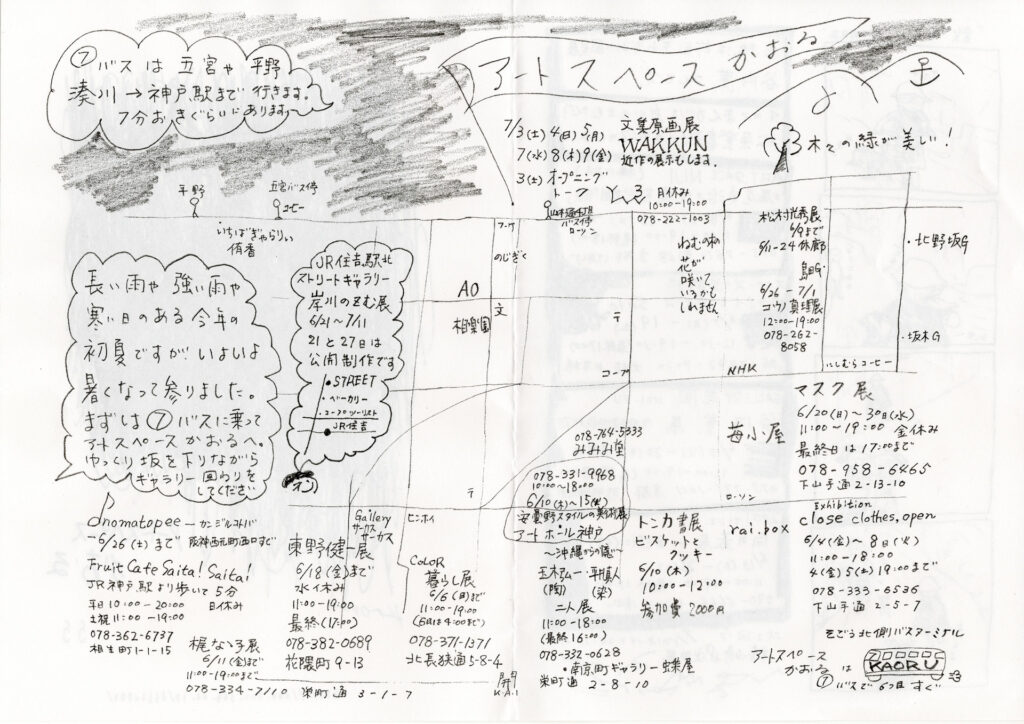 ⑦バスは五宮や平野
湊川→神戸駅まで行きます。
7分おきぐらいにあります
アートスペースかおる
7/3(土)4(日)5(月)
7(水)8(木)9(金)
3(土)オープニング
トーク
文集原画展
WAKKUN
近作の展示もします。
木々の緑が美しい!
とんぷ
月休み
10:00-19:00
078-222-1003
平野
五宮バス停
コーヒー
いちばぎゃらりぃ
侑香
バス停
ローソン
コープ
のじぎく
ねむの木の
花が
咲いて
いるかも
しれません
松村光秀展
6/9まで
6/1-24休廊
島田G
6/26-7/1
コウノ真理展
12:00-19:00
078-262-
8058
・北野坂G
・坂本G
にしむらコーヒー
長い雨や強い雨や
寒い日のある今年の
初夏ですが!いよいよ
暑くなって参りました。
まずは⑦バスに乗って
アートスペースかおるへ。
ゆっくり坂を下りながら
ギャラリー回わりを
してください
JR住吉駅北
ストリートギャラリー
岸川のぞむ展
6/21~7/11
21と27日は
公開制作です
・STREET
・ベーカリー
・コープツーリスト
・JR住吉
AO
相楽園
文
〒
コープ
NHK
マスク展
6/20(日)~30(水)
11:00~19:00 金休み
最終日は17:00まで
078-958-6465
下山手通2-13-10
苺小屋
ローソン
078-764-5333
みみみ堂
078-331-9968
10:00-18:00
6/10(木)~15(火)
安曇野スタイルの美術展
アートホール神戸
~沖縄からの隨い~
玉木アムー・平川真人
(陶)(染)
二人展
11:00-18:00
(最終16:00)
078-332-0628
・南京町ギャラリー蝶屋
栄町通 2-8-10
トンカ書展
ビスケットと
クッキー
6/10(木)
10:00-12:00
参加費2000円
rai.box
Exhibition
close clothes, open
6/4(金)~8日(火)
11:00-18:00
4(金)5(土)19:00まで
078-333-6536
下山手通2-5-7
そごう北側バスターミナル
アートスペース
かおるは
⑦
KAORU
⑦バスで6つ目すぐ
Onomatopee-カンジルコトバ
-6/26(土)まで 阪神西元町西口すぐ
Fruit Cafe Saita! Saita!
JR神戸駅より歩いて5分
平日10:00-20:00 日休み
土祝11:00-19:00
078-362-6737
相生町1-1-15
梶なゝ子展
6/11(金)まで
11:00-19:00まで
078-334-7110 栄町通 3-1-7
Gallery
サーカス
サーカス
東野健一展
6/18(金)まで
水休み
11:00-19:00
最終(17:00)
078-382-0689
花隈町9-13
〒
ヒンホイ
COLOR
暮らし展
6/6(日)まで
11:00-19:00
(6日は4:00まで)
078-371-1371
北長狭通5-8-4
開
K.A.I